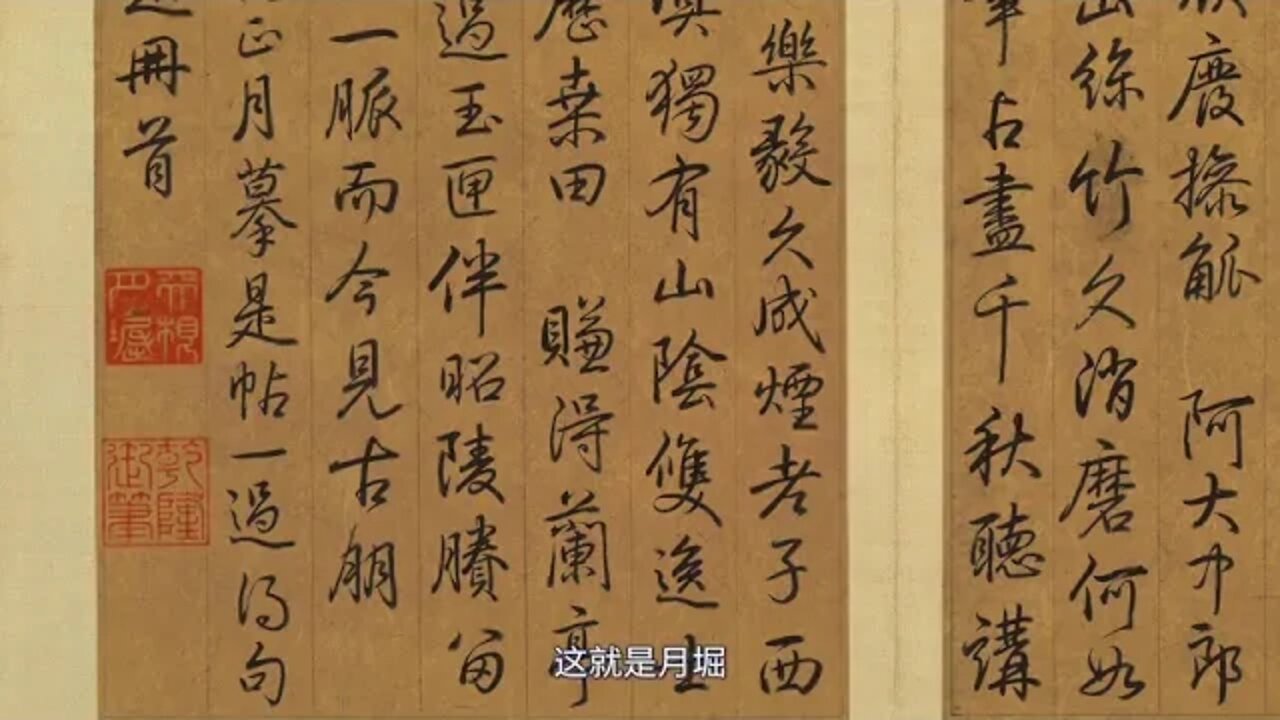 操觚 阿大中郎
山絲竹久消磨何如
占盡千秋聽講
樂毅久成煙老子西
獨有山陰雙逸士
歷桒田 賺得蘭亭
過玉匣伴昭陵賸留
一脈而今見古朋
正月摹是帖一過得句
冊首
乾隆御筆
这就是月堀